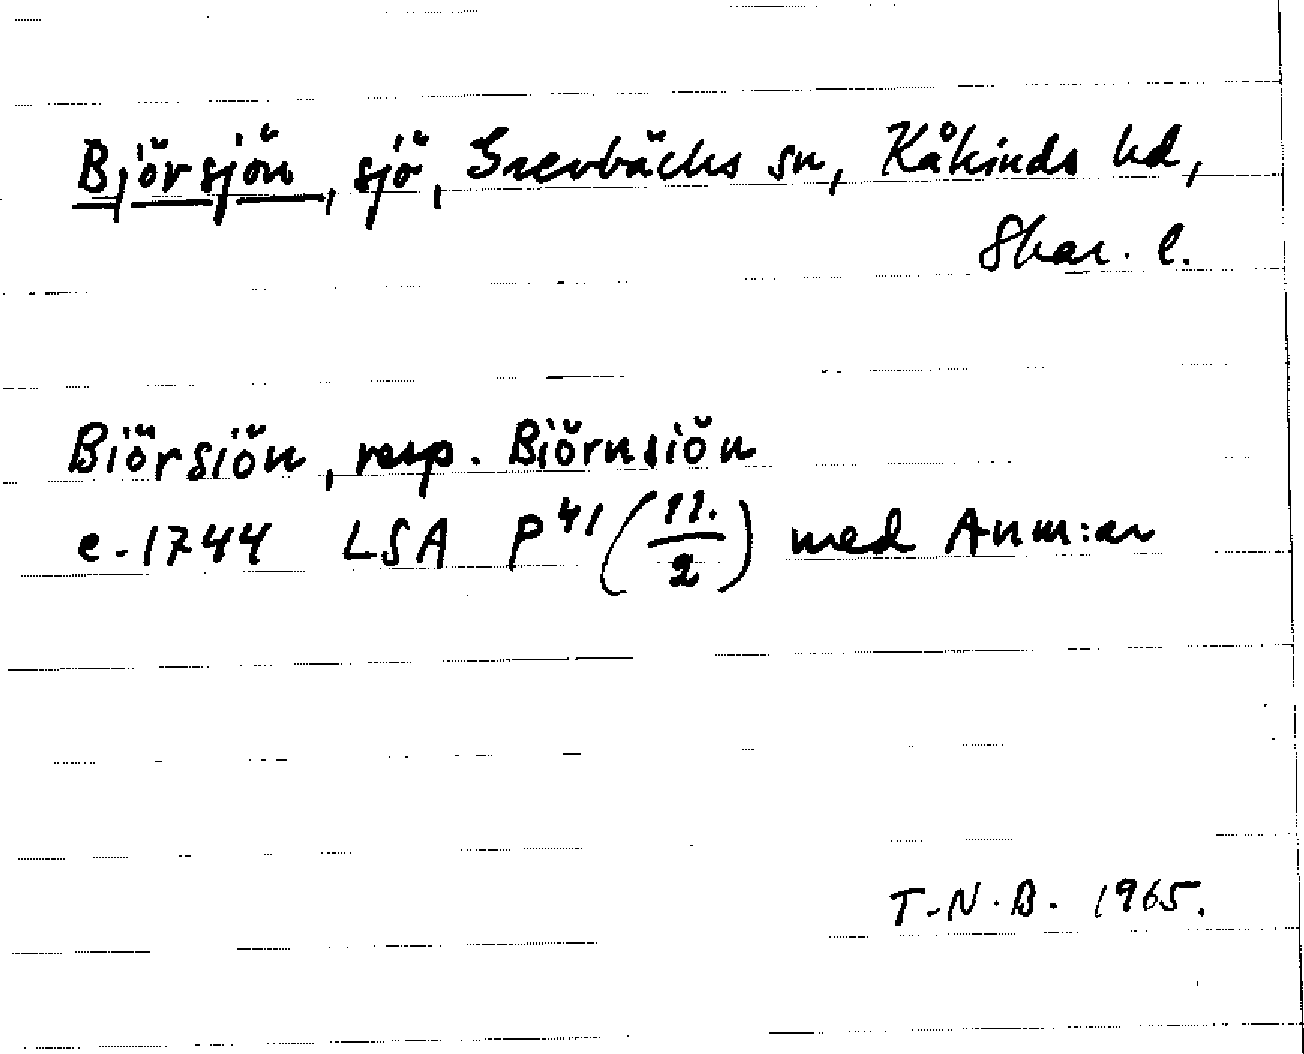 Björsjön, sjö, Grevbäcks sn, Kåkinds hd,
Skar. l.
Biörsiön, resp. Biörnsiön
e. 1744 LSA P 41 (11./2) med Anm:ar
T.N.B. 1965.